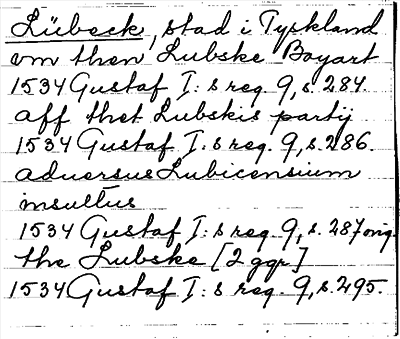 Lübeck, stad i Tyskland
om then Lubske Boyart
1534 Gustaf I:s reg. 9, s. 284.
aff thet Lubskis partij
1534 Gustaf I:s reg. 9, s. 286.
aduersus Lubicensium
insultus
1534 Gustaf I:s reg. 9, s. 287 orig.
the Lubske [2 ggr]
1534 Gustaf I:s reg. 9, s. 295.